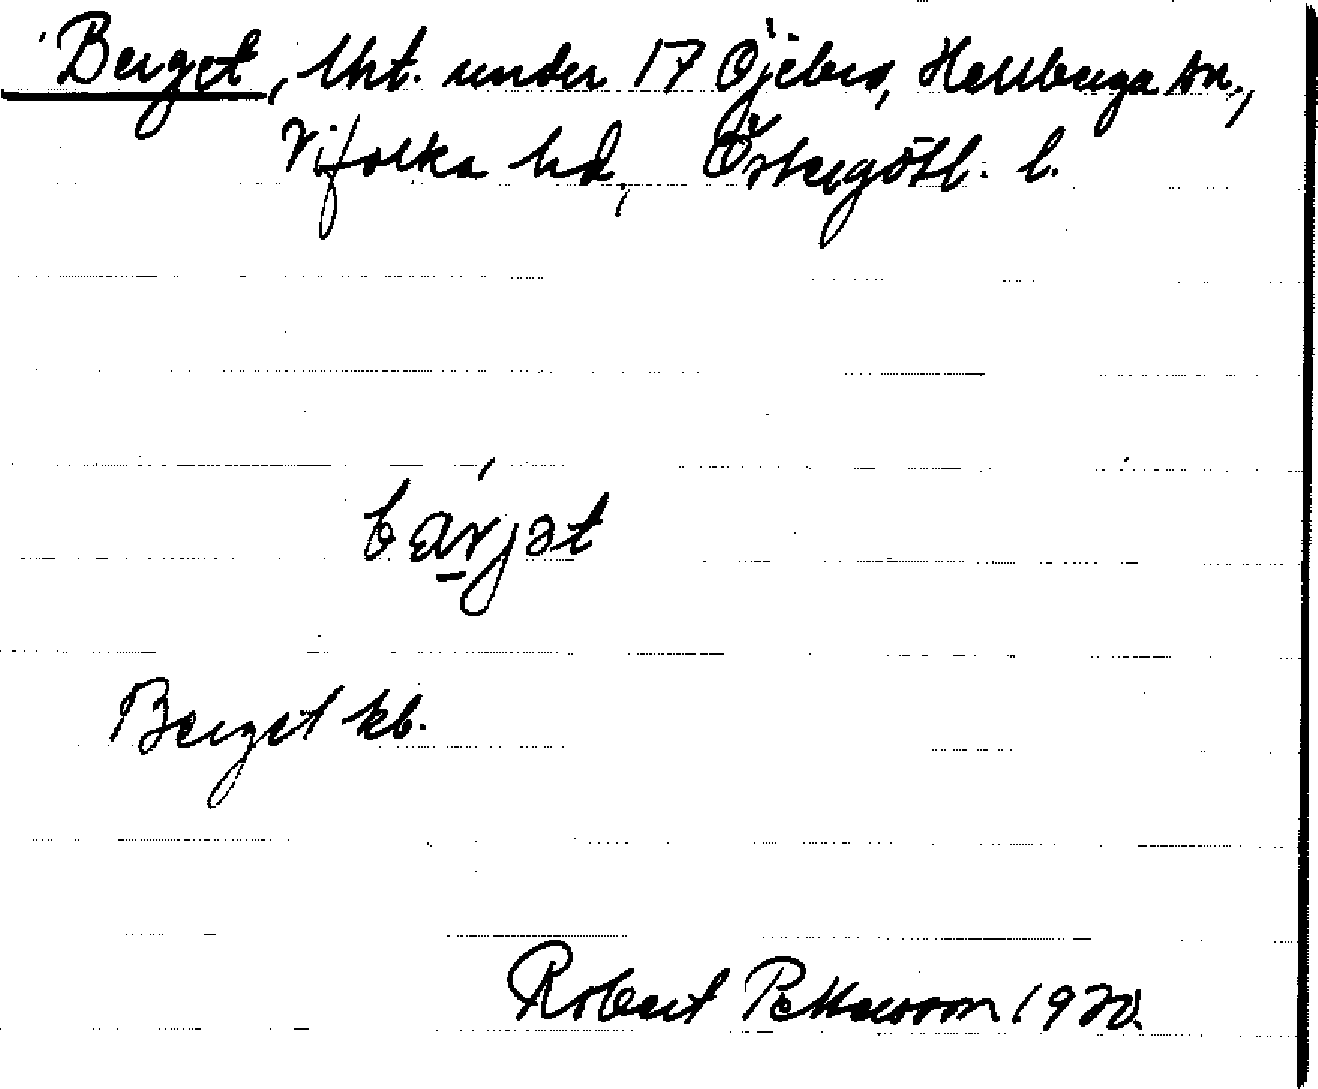 Berget, lht. under 17 Öjebro, Herrberga sn.,
Vifolka hd, Östergötl. l.
bärjət
Berget kb.
Robert Pettersson 1920.